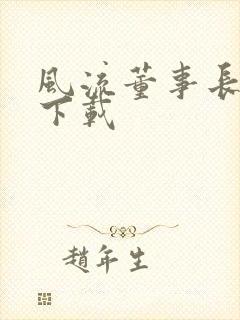 風流董事長
下載
趙年生